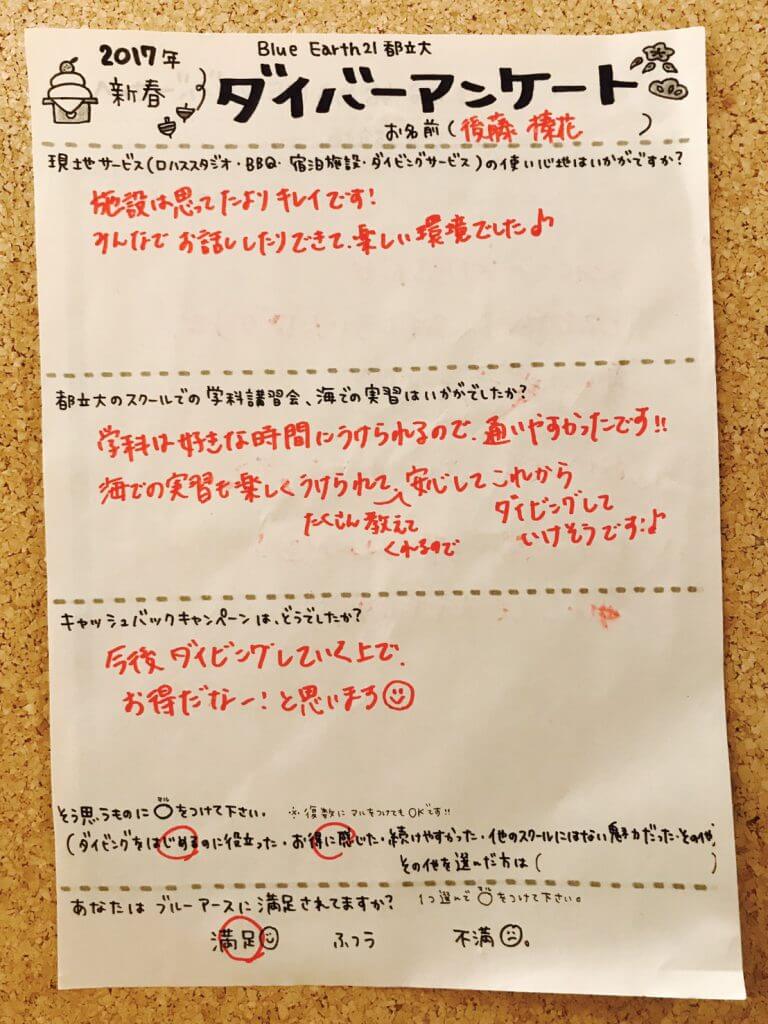 2017年
新春
Blue Earth21 都立大
ダイバーアンケート
お名前(後藤 榛花)
現地サービス(ロハススタジオ・BBQ・宿泊施設・ダイビングサービス)の使い心地はいかがですか?
施設は思ってたよりキレイです!
みんなでお話ししたりできて、楽しい環境でした♪
都立大のスクールでの学科講習会、海での実習はいかがでしたか?
学科は好きな時間にうけられるので、通いやすかったです!!
海での実習も楽しくうけられて、安心してこれから
たくさん教えて
くれるので
ダイビングして
いけそうです♪
キャッシュバックキャンペーンは、どうでしたか?
今後ダイビングしていく上で、
お得だなー!と思います
そう思うものに○をつけて下さい。 ※復数にマルをつけてもOKです!!
(ダイビングをはじめるのに役立った・お得に感じた・続けやすかった・他のスクールにはない魅力だった・その他
その他を選んだ方は( )
あなたはブルーアースに満足されてますか? 1つ選んで○をつけて下さい。
満足 ふつう 不満。